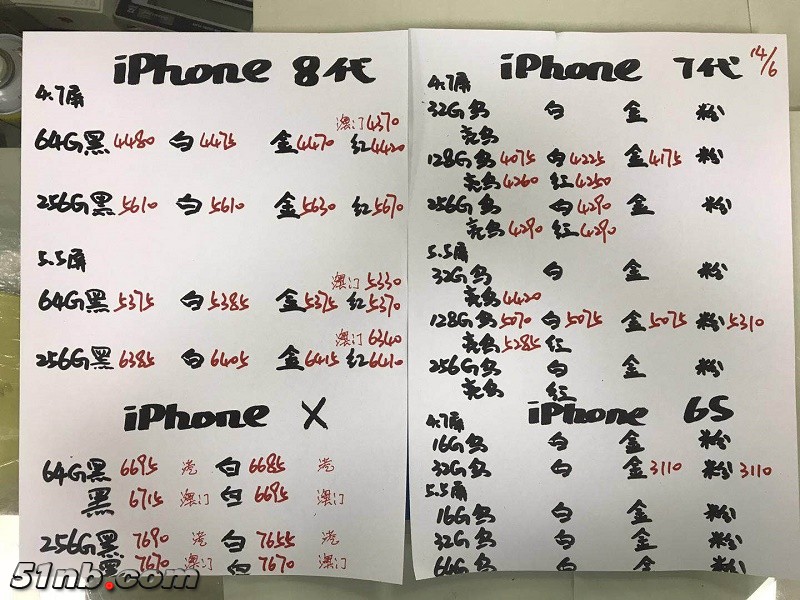 iPhone 8代
4.7屏
澳门4370
64G黑4480 白4475 金4470 红4420
256G黑5610 白5610 金5630 红5670
5.5屏
澳门5330
64G黑5375 白5385 金5375 红5370
澳门6340
256G黑6385 白6405 金6415 红6410
iPhone X
64G黑 6695 港 白6685 港
黑 6715 澳门 白6695 澳门
256G黑 7690 港 白7655 港
黑 7670 澳门 白7670 澳门
iPhone 7代 14/6
4.7屏
32G乌 白 金 粉
亮乌
128G乌4075 白4225 金4175 粉
亮乌4260 红4250
256G乌 白4290 金 粉
亮乌4290 红4290
5.5屏
32G乌 白 金 粉
亮乌4420
128G乌5070 白5075 金5075 粉5310
亮乌5285 红
256G乌 白 金 粉
亮乌 红
iPhone 6S
4.7屏
16G乌 白 金 粉
32G乌 白 金3110 粉3110
5.5屏
16G乌 白 金 粉
32G乌 白 金 粉
64G乌 白 金 粉
51nb.com